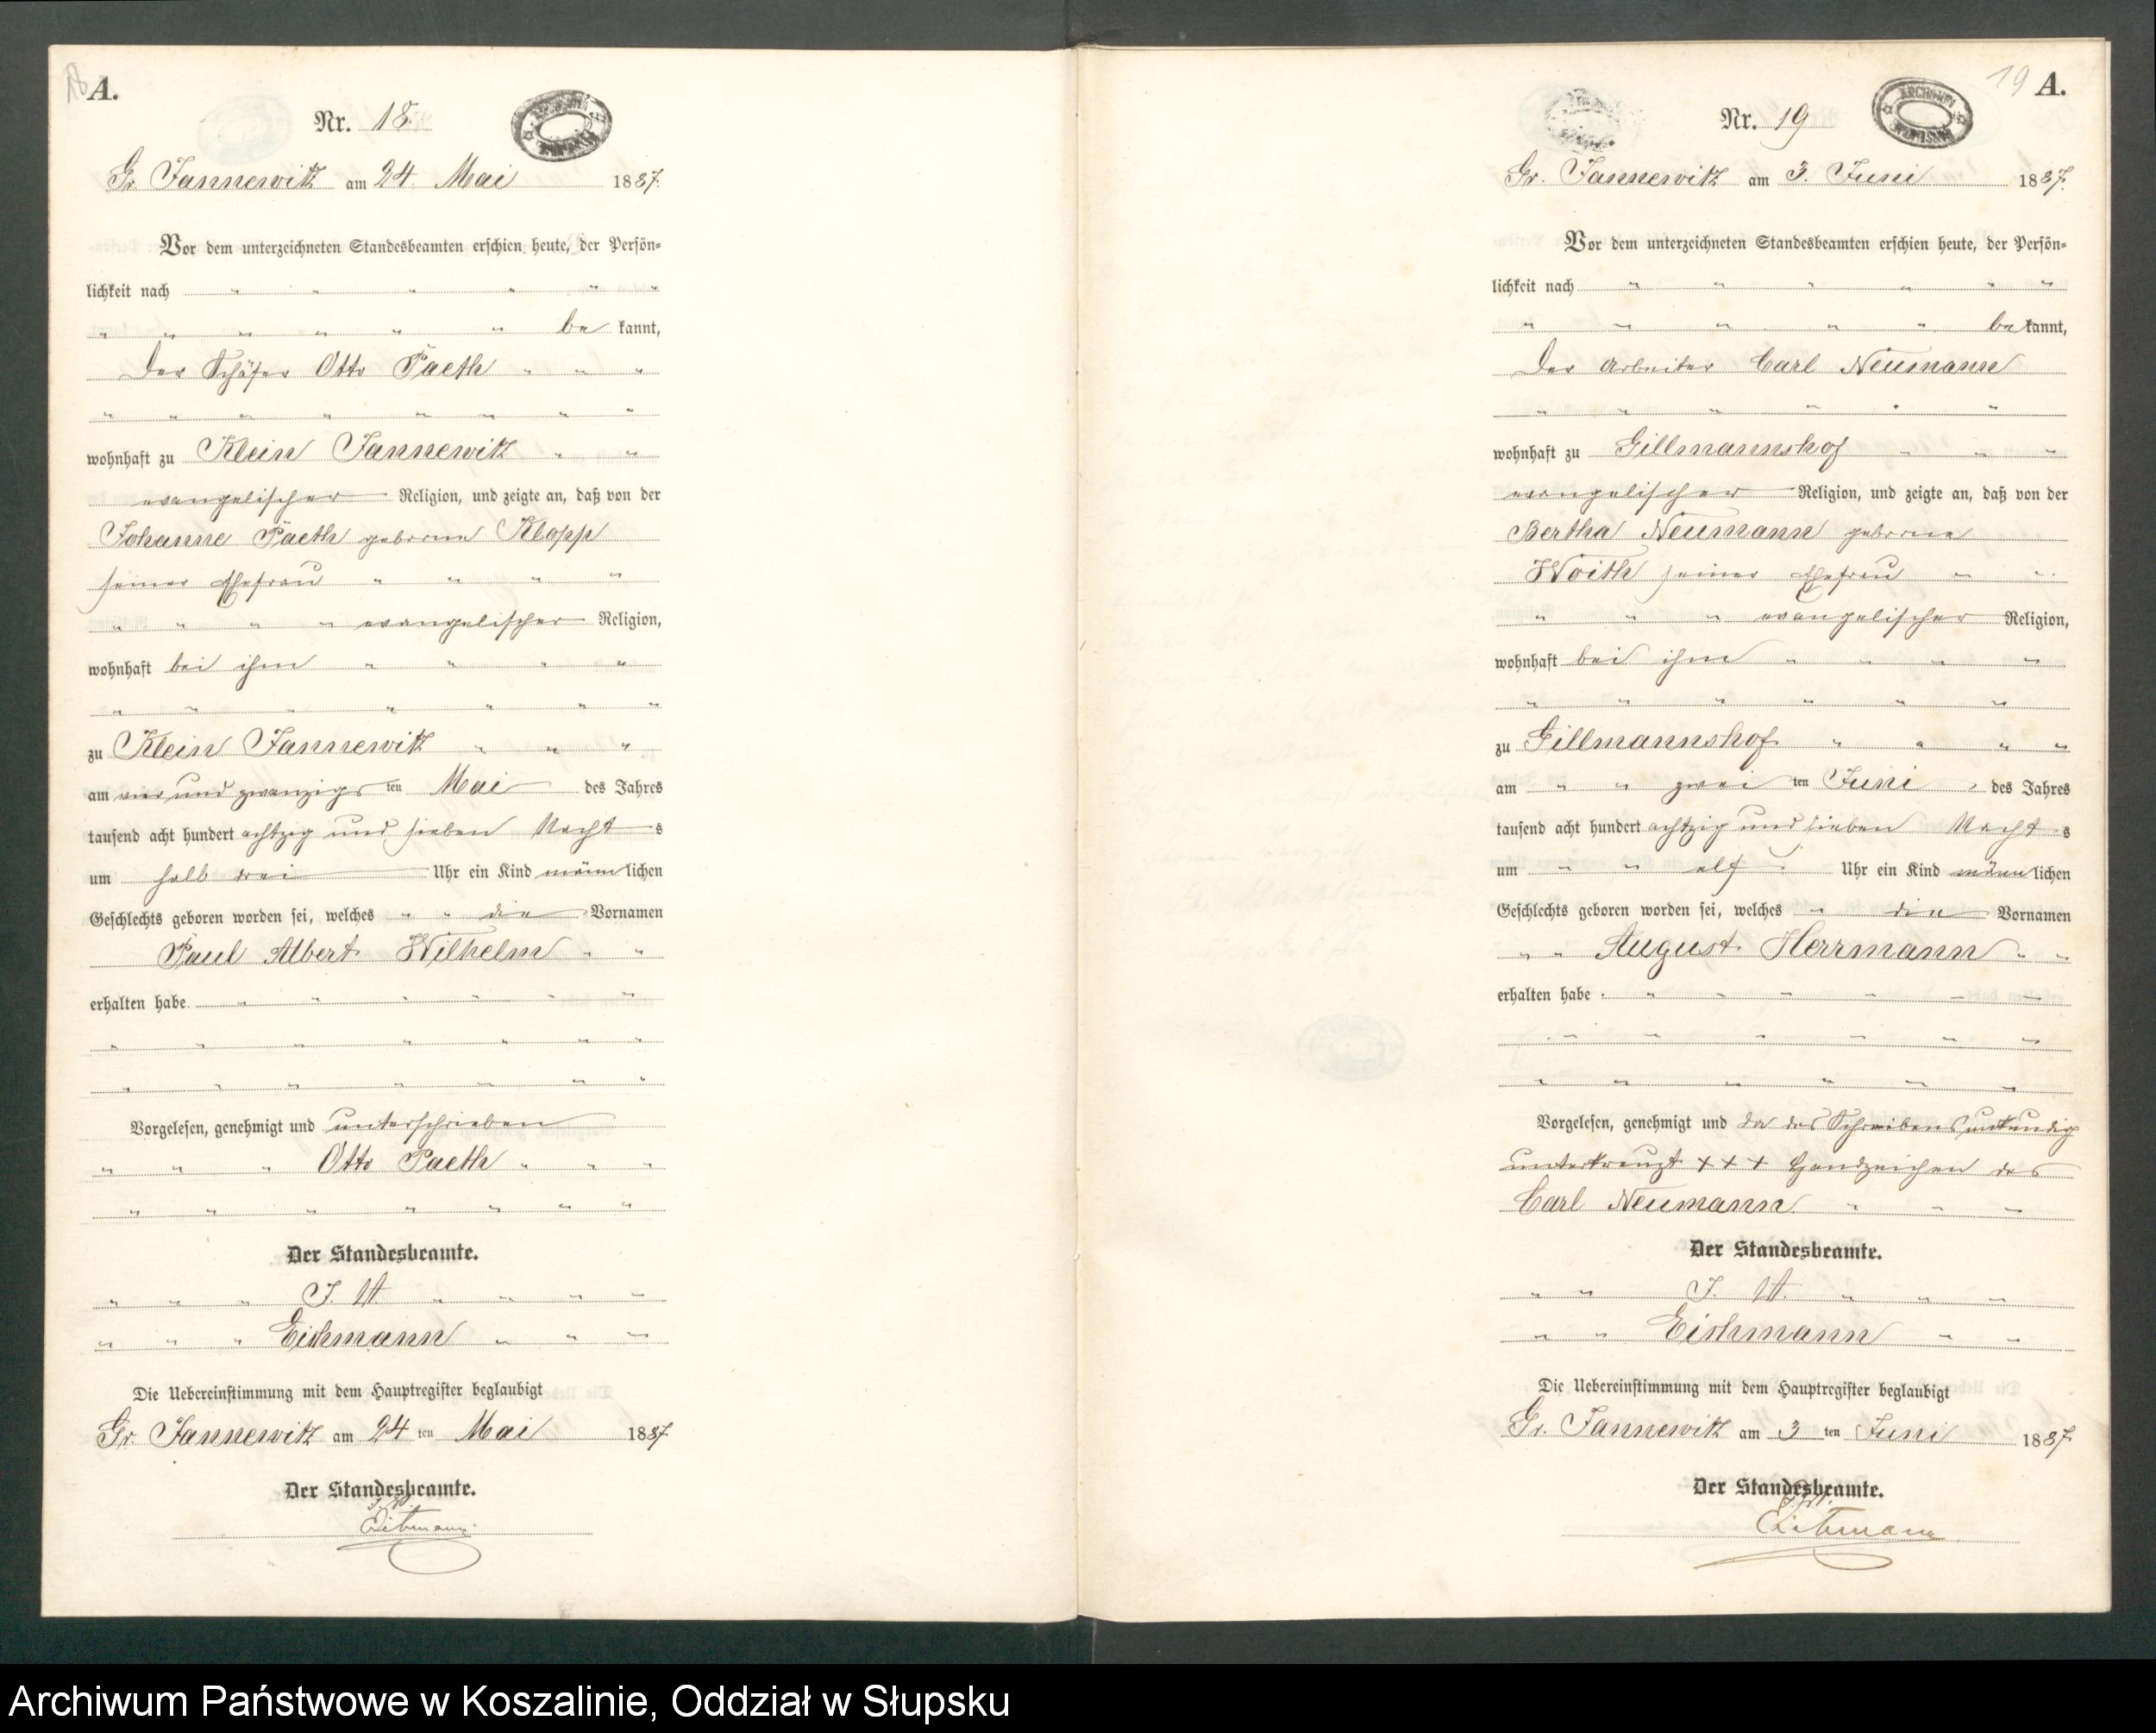 18
A.
Nr. 18.
Gr. Jannewitz am 24. Mai 1887.
Vor dem unterzeichneten Standesbeamten erschien heute, der Persön-
lichkeit nach
be kannt,
der Schäfer Otto Paeth
wohnhaft zu Klein Jannewitz
evangelischer Religion, und zeigte an, daß von der
Johanne Paeth geborene Klopp
seiner Ehefrau
evangelischer Religion,
wohnhaft bei ihm
zu Klein Jannewitz
am vier und zwanzigs ten Mai des Jahres
tausend acht hundert achtzig und sieben Nacht s
um halb drei Uhr ein Kind männ lichen
Geschlechts geboren worden sei, welches die Vornamen
Paul Albert Wilhelm
erhalten habe.
Vorgelesen, genehmigt und unterschrieben
Otto Paeth
Der Standesbeamte.
J. V.
Eichmann
Die Uebereinstimmung mit dem Hauptregister beglaubigt
Gr. Jannewitz am 24 ten Mai 1887
Der Standesbeamte.
19 A.
Nr. 19
ARCHIWUM
Gr. Jannewitz am 3. Juni 1887.
Vor dem unterzeichneten Standesbeamten erschien heute, der Persön-
lichkeit nach
be kannt,
der Arbeiter Carl Neumann
wohnhaft zu Gillmannshof
evangelischer Religion, und zeigte an, daß von der
Bertha Neumann geborene
Woith seiner Ehefrau
evangelischer Religion,
wohnhaft bei ihm
zu Gillmannshof
am zwei ten Juni des Jahres
tausend acht hundert achtzig und sieben Nacht s
um elf Uhr ein Kind männ lichen
Geschlechts geboren worden sei, welches die Vornamen
August Herrmann
erhalten habe
Vorgelesen, genehmigt und da des Schreibens unkundig
unterkreuzt +++ Handzeichen des
Carl Neumann
Der Standesbeamte.
J. V.
Eichmann
Die Uebereinstimmung mit dem Hauptregister beglaubigt
Gr. Jannewitz am 3 ten Juni 1887.
Der Standesbeamte.
Archiwum Państwowe w Koszalinie, Oddział w Słupsku